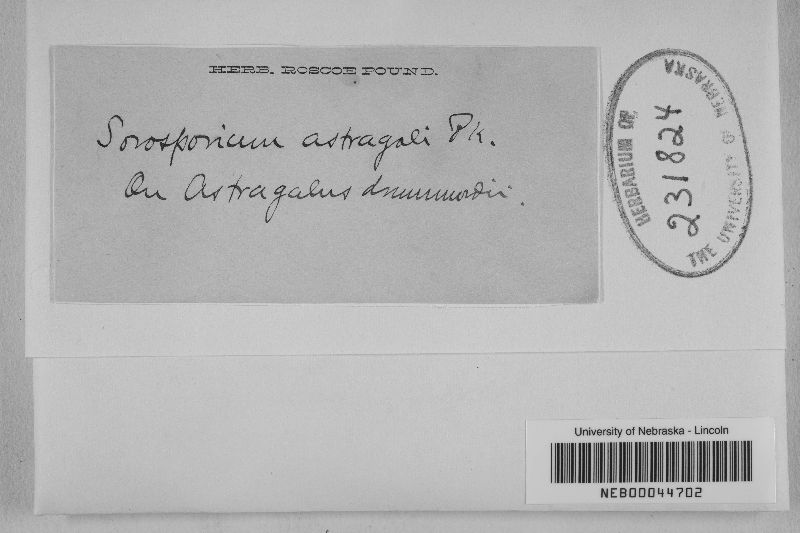 HERB. ROSCOE POUND.
Sorosporium astragali Pk.
On Astragalus drummondii.
HERBARIUM OF
231824
THE UNIVERSITY OF NEBRASKA
University of Nebraska - Lincoln
NEB00044702